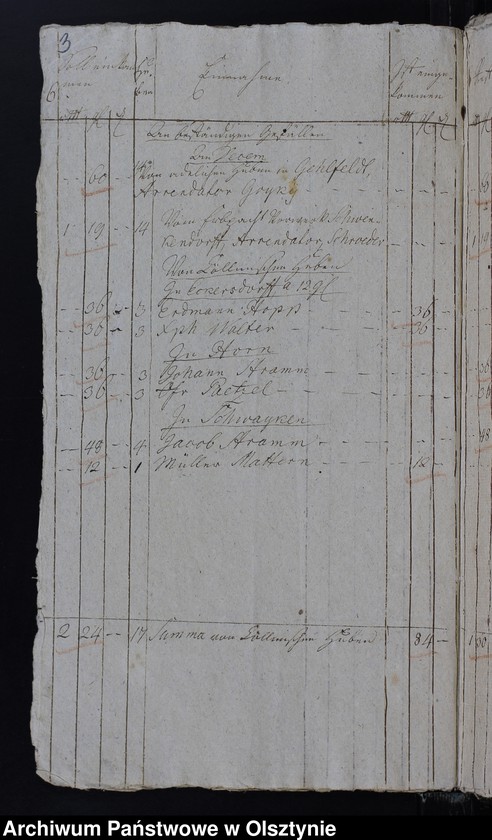 3
6
Soll einkommen
Huben
Einnahme.
Ist eingekommen
An beständigen Gefällen
An Decem
60 Von adelichen Huben in Gehlfeldt,
Arrendator
1 19 14 Vom Vorwerk Schwenkendorff, Arrendator Schroeder
Von Cöllmischen Huben
In Eckersdorff a 12 gl
36 3 Erdmann Hopp 36
36 3 Xph Walter 36
In Horn
36 3 Johann Aramm
36 3 Chr Paetzel
In Schwayken
48 4 Jacob Aramm
12 1 Müller Mattern 12
2 24 17 Summa von Cöllmischen Huben 84
Archiwum Państwowe w Olsztynie